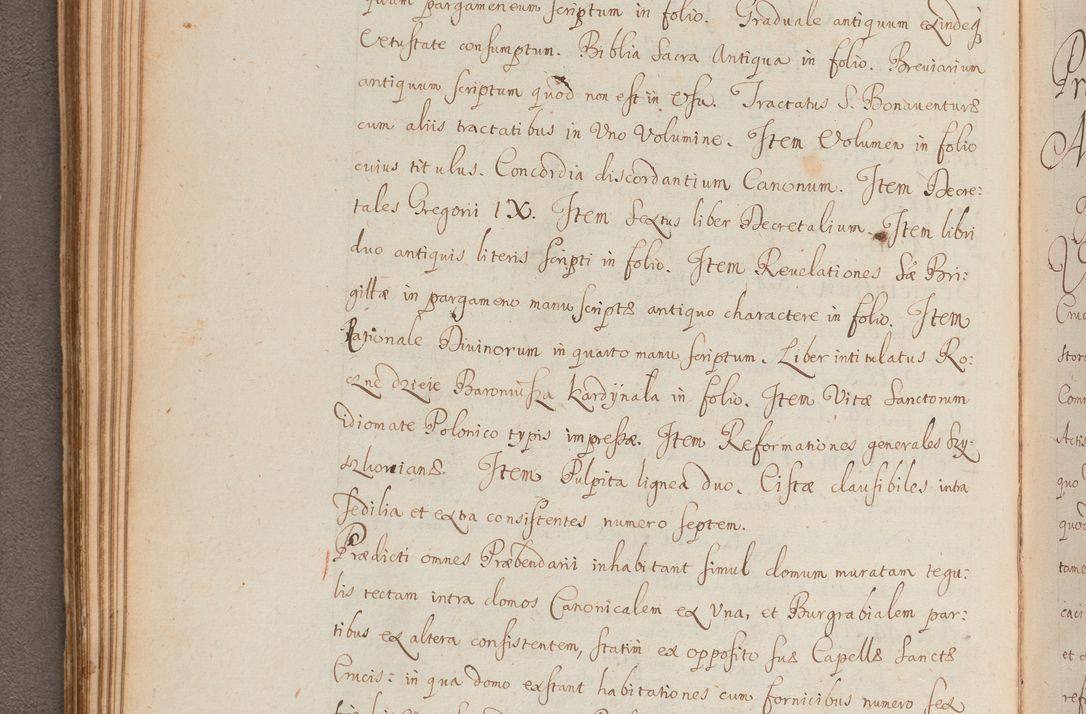 quum pargameneum scriptum in folio. Graduale antiquum exindeq
Vetustate consumptum. Biblia Sacra Antiqua in folio. Breviarium
antiquum scriptum quod non est in Usu. Tractatus S. Bonaventuræ
cum aliis tractatibus in Uno Volumine. Item Volumen in folio
cuius titulus. Concordia discordantium Canonum. Item Decre:
tales Gregorii IX. Item Sextus liber Decretalium. Item libri
duo antiquis literis scripti in folio. Item Revelationes Sæ Bri:
gittæ in pargameno manu scriptæ antiquo charactere in folio. Item
Rationale Divinorum in quarto manu scriptum. Liber intitulatus Ro:
czne dzieie Baroniusza kardynala in folio. Item Vitæ Sanctorum
idiomate Polonico typis impressæ. Item Reformationes generales Szy:
szkovianæ. Item Pulpita lignea duo. Cistæ clausibiles intra
sedilia et extra consistentes numero septem.
Prædicti omnes Præbendarii inhabitant simul domum muratam tegu:
lis tectam intra domos Canonicalem ex Una, et Burgrabialem par:
tibus ex altera consistentem, statim ex opposito suæ Capellæ Sanctæ
Crucis: in qua domo exstant habitationes cum fornicibus numero sex